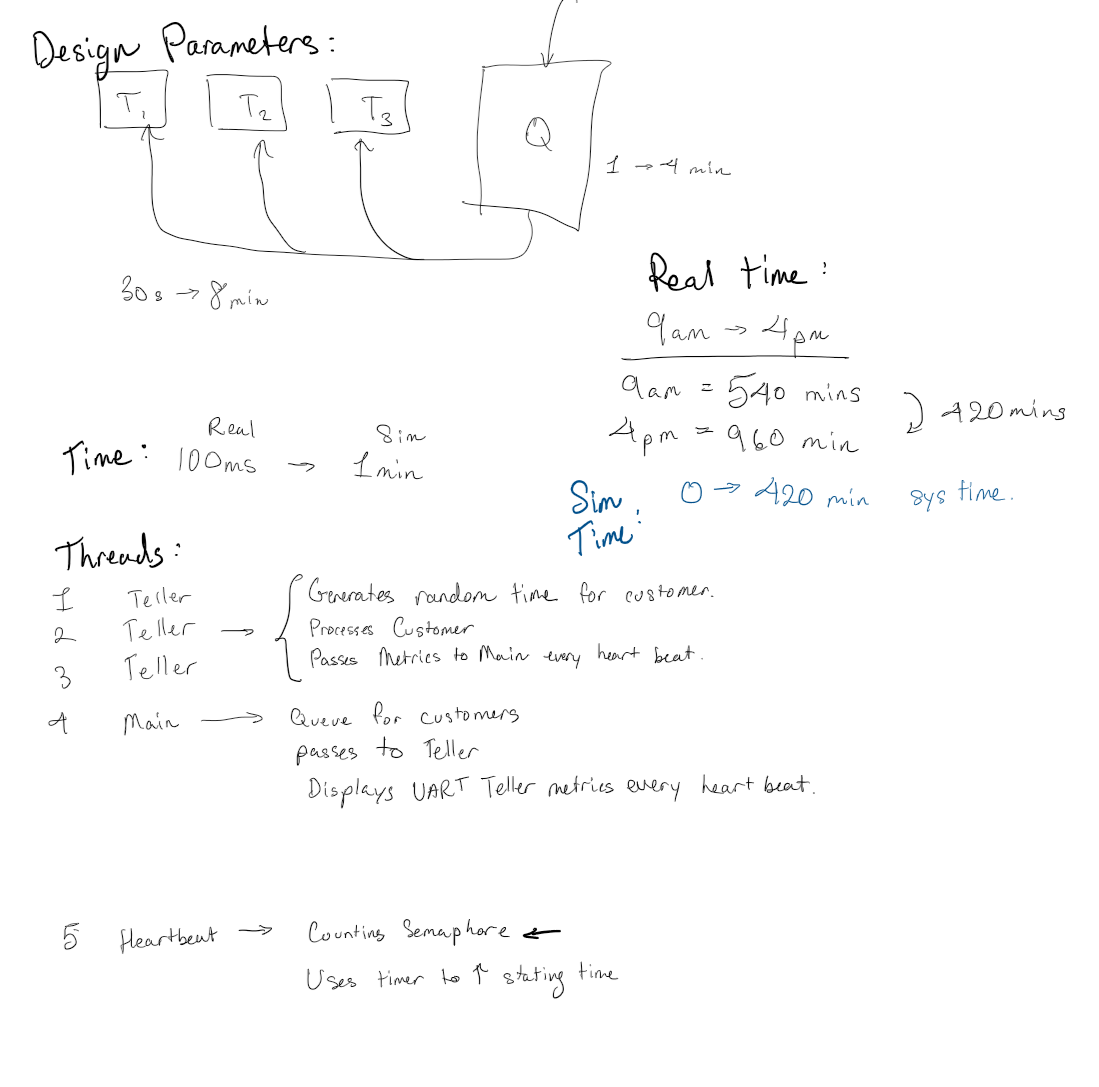 Design Parameters:
T1 T2 T3
Q
1 → 4 min
30s → 8 min
Real time:
9am → 4pm
9am = 540 mins
4pm = 960 min
420 mins
Real Sim
Time: 100ms → 1 min
Sim Time: 0 → 420 min sys time.
Threads:
1 Teller
2 Teller →
3 Teller
Generates random time for customer.
Processes Customer
Passes Metrics to Main every heart beat.
4 Main → Queue for customers
passes to Teller
Displays UART Teller metrics every heart beat.
5 Heartbeat → Counting Semaphore ←
Uses timer to ↑ stating time